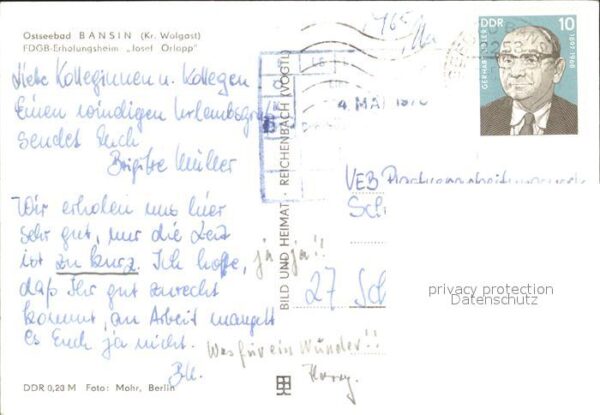 Ostseebad BANSIN (Kr. Wolgast)
FDGB-Erholungsheim „Josef Orlopp"
Liebe Kolleginnen u. Kollegen
Einen windigen Urlaubsgruß
sendet Euch
Brigitte Müller
Wir erholen uns hier
sehr gut, nur die Zeit
ist zu kurz. Ich hoffe,
daß Ihr gut zurecht
kommt, an Arbeit mangelt
es Euch ja nicht.
ja ja!!
Was für ein Wunder!!
DDR 0,23 M Foto: Mohr, Berlin
BILD UND HEIMAT REICHENBACH (VOGTL)
DDR 10
GERHART
4 MAI
VEB
Sch
27 Sch
privacy protection
Datenschutz